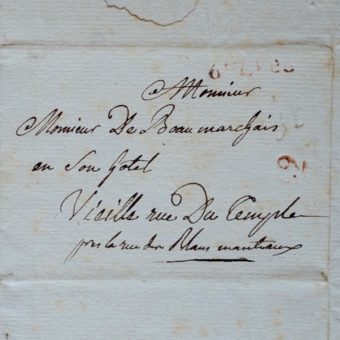 Monsieur
Monsieur De Beaumarchais
en Son hotel
Vieille rue Du Temple
pres la rue des Blancs manteaux